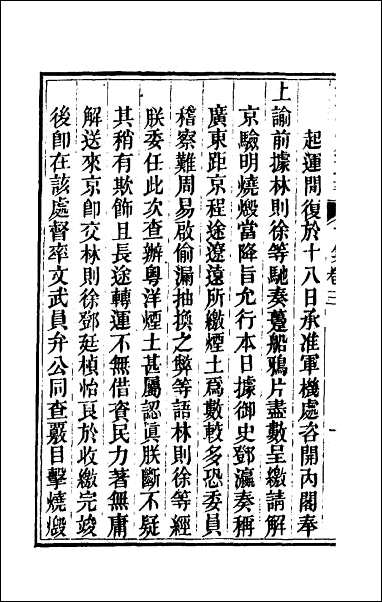 起運間復於十八日承准軍機處咨開內閣奉
上諭前據林則徐等馳奏躉船鴉片盡數呈繳請解
京驗明燒燬當降旨允行本日據御史鄧瀛奏稱
廣東距京程途遼遠所繳煙土爲數較多恐委員
稽察難周易啟偷漏抽換之弊等語林則徐等經
朕委任此次查辦粵洋煙土甚屬認眞朕斷不疑
其稍有欺飾且長途轉運不無借資民力著無庸
解送來京卽交林則徐鄧廷楨怡良於收繳完竣
後卽在該處督率文武員弁公同查覈目擊燒燬
卷三